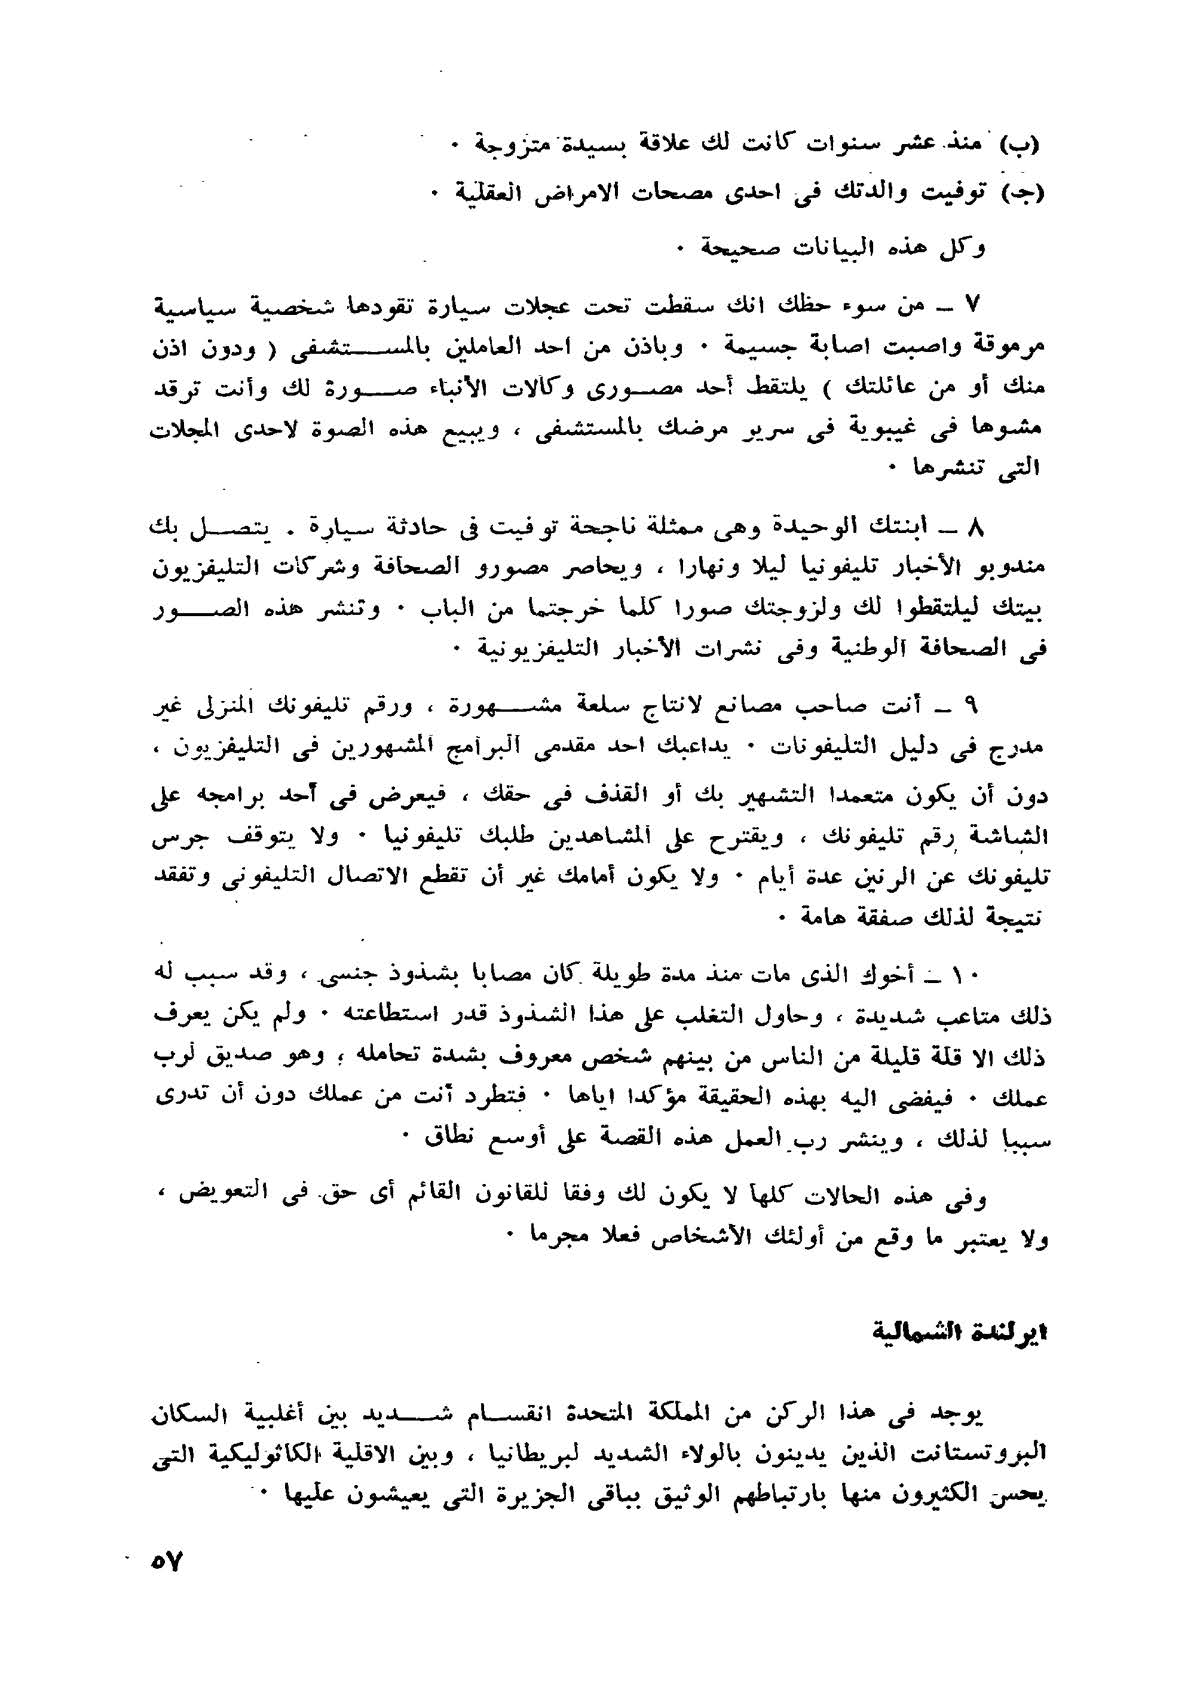 (ب) منذ عشر سنوات كانت لك علاقة بسيدة متزوجة ٠
(جـ) توفيت والدتك فى احدى مصحات الامراض العقلية ٠
وكل هذه البيانات صحيحة ٠
٧ ـ من سوء حظك انك سقطت تحت عجلات سيارة تقودها شخصية سياسية
مرموقة واصبت اصابة جسيمة ٠ وباذن من احد العاملين بالمستشفى ( ودون اذن
منك أو من عائلتك ) يلتقط أحد مصورى وكالات الأنباء صورة لك وأنت ترقد
مشوها فى غيبوية فى سرير مرضك بالمستشفى ، ويبيع هذه الصوة لاحدى المجلات
التى تنشرها ٠
٨ ـ ابنتك الوحيدة وهى ممثلة ناجحة توفيت فى حادثة سيارة . يتصل بك
مندوبو الأخبار تليفونيا ليلا ونهارا ، ويحاصر مصورو الصحافة وشركات التليفزيون
بيتك ليلتقطوا لك ولزوجتك صورا كلما خرجتما من الباب ٠ وتنشر هذه الصور
فى الصحافة الوطنية وفى نشرات الأخبار التليفزيونية ٠
٩ ـ أنت صاحب مصانع لانتاج سلعة مشهورة ، ورقم تليفونك المنزلى غير
مدرج فى دليل التليفونات ٠ يداعبك احد مقدمى البرامج المشهورين فى التليفزيون ،
دون أن يكون متعمدا التشهير بك أو القذف فى حقك ، فيعرض فى أحد برامجه على
الشاشة رقم تليفونك ، ويقترح على المشاهدين طلبك تليفونيا ٠ ولا يتوقف جرس
تليفونك عن الرنين عدة أيام ٠ ولا يكون أمامك غير أن تقطع الاتصال التليفونى وتفقد
نتيجة لذلك صفقة هامة ٠
١٠ ـ أخوك الذى مات منذ مدة طويلة كان مصابا بشذوذ جنسى ، وقد سبب له
ذلك متاعب شديدة ، وحاول التغلب على هذا الشذوذ قدر استطاعته ٠ ولم يكن يعرف
ذلك الا قلة قليلة من الناس من بينهم شخص معروف بشدة تحامله ؛ وهو صديق لرب
عملك ٠ فيفضى اليه بهذه الحقيقة مؤكدا اياها ٠ فتطرد أنت من عملك دون أن تدرى
سببا لذلك ، وينشر رب العمل هذه القصة على أوسع نطاق ٠
وفى هذه الحالات كلها لا يكون لك وفقا للقانون القائم أى حق فى التعويض ،
ولا يعتبر ما وقع من أولئك الأشخاص فعلا مجرما ٠
ايرلندة الشمالية
يوجد فى هذا الركن من المملكة المتحدة انقسام شديد بين أغلبية السكان
البروتستانت الذين يدينون بالولاء الشديد لبريطانيا ، وبين الاقلية الكاثوليكية التى
يحس الكثيرون منها بارتباطهم الوثيق بباقى الجزيرة التى يعيشون عليها ٠
٥٧